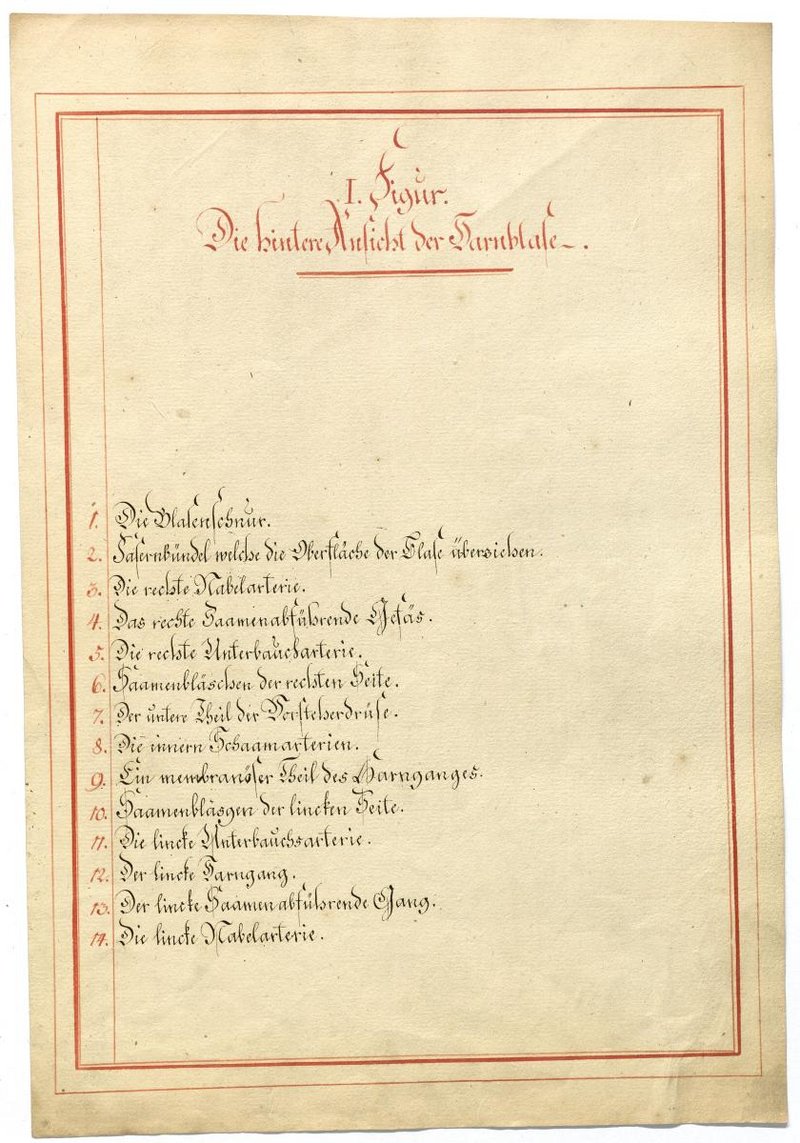 I. Figur.
Die hintere Ansicht der Harnblase.
1. Die Blasenschnur.
2. Fasernbündel welche die Oberfläche der Blase überziehen.
3. Die rechte Nabelarterie.
4. Das rechte Saamenabführende Gefäs.
5. Die rechte Unterbaucharterie.
6. Saamenbläschen der rechten Seite.
7. Der untere Theil der Vorsteherdrüse.
8. Die innern Schaamarterien.
9. Ein membranöser Theil des Harnganges.
10. Saamenbläsgen der lincken Seite.
11. Die lincke Unterbauchsarterie.
12. Der lincke Harngang.
13. Der lincke Saamen abführende Gang.
14. Die lincke Nabelarterie.